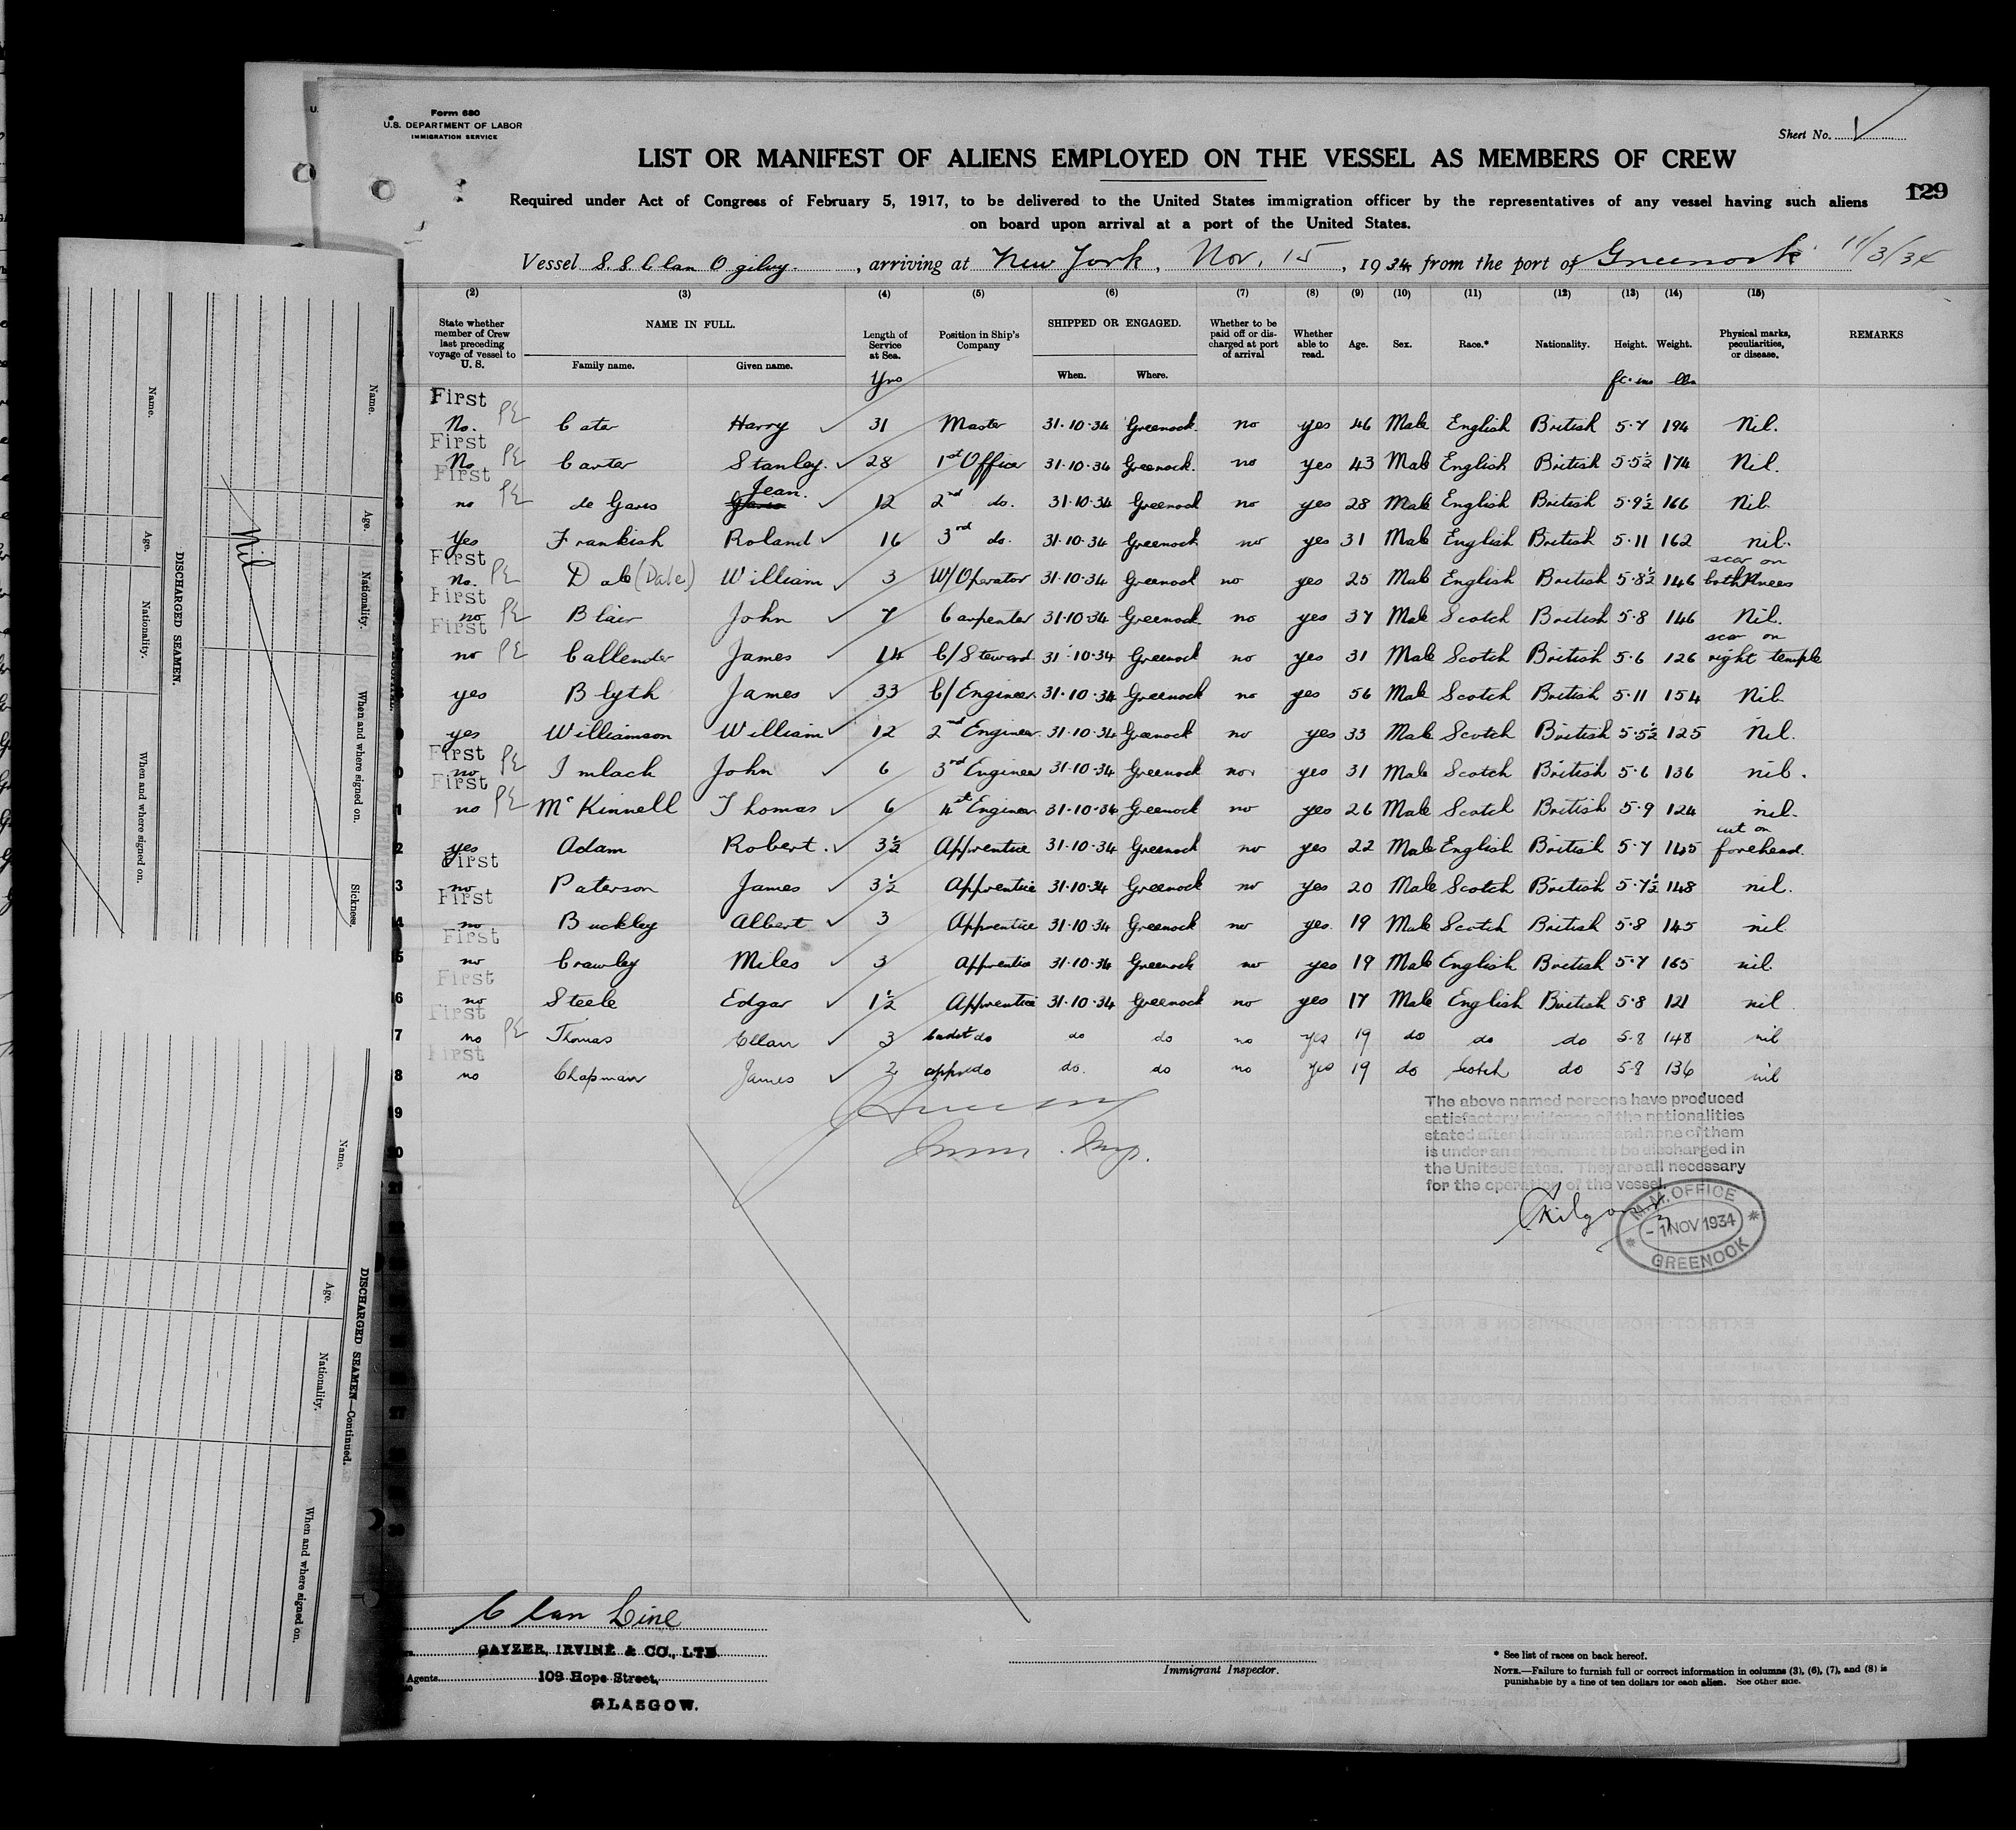 Form 680
U.S. DEPARTMENT OF LABOR
IMMIGRATION SERVICE
Sheet No. 1
LIST OR MANIFEST OF ALIENS EMPLOYED ON THE VESSEL AS MEMBERS OF CREW
129
Required under Act of Congress of February 5, 1917, to be delivered to the United States immigration officer by the representatives of any vessel having such aliens
on board upon arrival at a port of the United States.
Vessel S.S. Clan Ogilvy., arriving at New York, Nov. 15, 1934 from the port of Greenock 11/3/34
(2) (3) (4) (5) (6) (7) (8) (9) (10) (11) (12) (13) (14) (15)
State whether member of Crew last preceding voyage of vessel to U. S. NAME IN FULL. Family name. Given name. Length of Service at Sea. Position in Ship's Company SHIPPED OR ENGAGED. When. Where. Whether to be paid off or discharged at port of arrival Whether able to read. Age. Sex. Race.* Nationality. Height. Weight. Physical marks, peculiarities, or disease. REMARKS
Yrs ft. ins lbs
First No. PE Cater Harry 31 Master 31.10.34 Greenock. no yes 46 Male English British 5.7 194 Nil.
First No PE Carter Stanley. 28 1st Officer 31.10.34 Greenock. no yes 43 Male English British 5.5½ 174 Nil.
First no PE de Garis Jean. 12 2nd do. 31.10.34 Greenock no yes 28 Male English British 5.9½ 166 Nil
Yes Frankish Roland 16 3rd do. 31.10.34 Greenock no yes 31 Male English British 5.11 162 nil.
First No. PE Dale (Dale) William 3 W/Operator 31.10.34 Greenock no yes 25 Male English British 5.8½ 146 scar on both Knees
First no PE Blair John 7 Carpenter 31.10.34 Greenock no yes 37 Male Scotch British 5.8 146 Nil.
First no PE Callender James 14 C/Steward 31.10.34 Greenock no yes 31 Male Scotch British 5.6 126 scar on right temple
yes Blyth James 33 C/Engineer 31.10.34 Greenock no yes 56 Male Scotch British 5.11 154 Nil
yes Williamson William 12 2nd Engineer 31.10.34 Greenock no yes 33 Male Scotch British 5.5½ 125 Nil.
First no PE Imlach John 6 3rd Engineer 31.10.34 Greenock no yes 31 Male Scotch British 5.6 136 nil.
First no PE McKinnell Thomas 6 4th Engineer 31.10.34 Greenock no yes 26 Male Scotch British 5.9 124 nil.
yes Adam Robert. 3½ Apprentice 31.10.34 Greenock no yes 22 Male English British 5.7 145 cut on forehead.
First no Paterson James 3½ Apprentice 31.10.34 Greenock no yes 20 Male Scotch British 5.7½ 148 nil.
First no Buckley Albert 3 Apprentice 31.10.34 Greenock no yes. 19 Male Scotch British 5.8 145 nil
First no Crawley Miles 3 Apprentice 31.10.34 Greenock no yes 19 Male English British 5.7 165 nil
First no Steele Edgar 1½ Apprentice 31.10.34 Greenock no yes 17 Male English British 5.8 121 nil
First no PE Thomas 3 Cadet do do do no yes 19 do do do 5-8 148 nil
First no Chapman James 2 do do. do no yes 19 do Scotch do 5-8 136 nil
The above named persons have produced
satisfactory evidence of the nationalities
stated after their names and none of them
is under an agreement to be discharged in
the United States. They are all necessary
for the operation of the vessel.
M.M. OFFICE
- 1 NOV 1934
GREENOCK
Clan Line
CAYZER, IRVINE & CO., LTD
Agents
109 Hope Street,
GLASGOW.
Immigrant Inspector.
* See list of races on back hereof.
NOTE.—Failure to furnish full or correct information in columns (3), (6), (7), and (8) is
punishable by a fine of ten dollars for each alien. See other side.
DISCHARGED SEAMEN.
Name. Age. Nationality. When and where signed on.
Name. Age. Nationality. When and where signed on. Sickness.
Nil
DISCHARGED SEAMEN—Continued.
Name. Age. Nationality. When and where signed on.